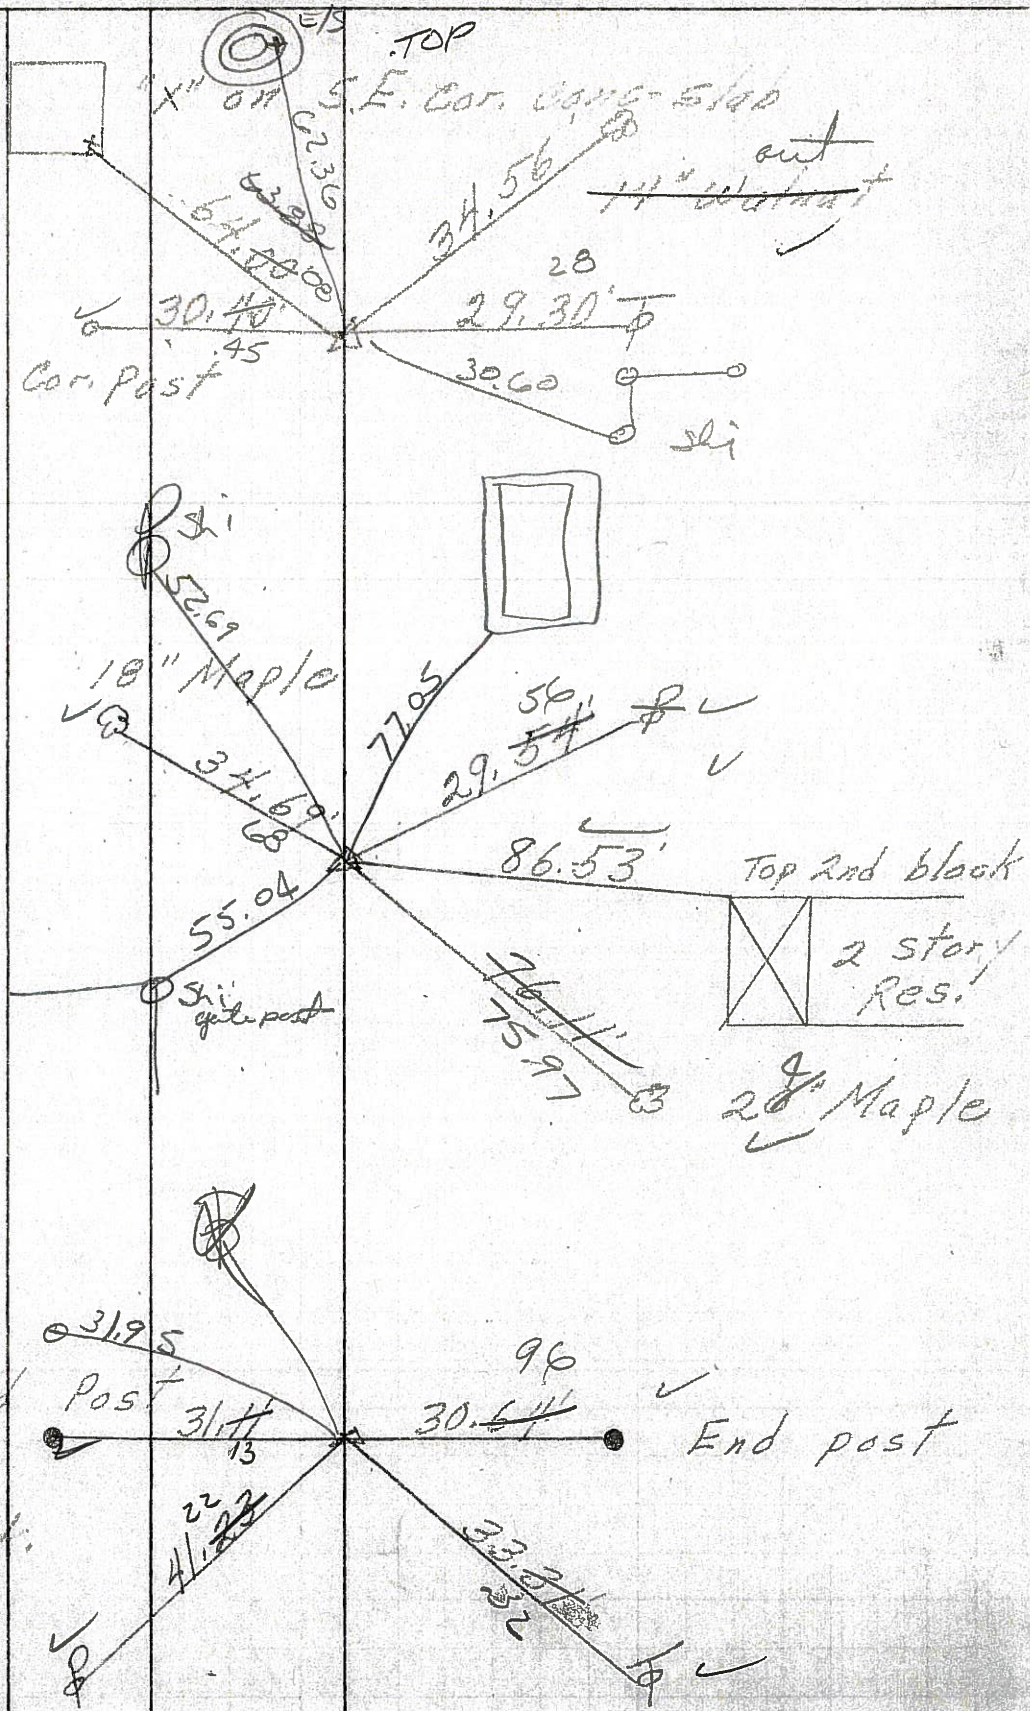 E/S
.TOP
"X" on S.E. Cor. Conc. Slab
62.36
34.56
out
14" Walnut
63.88
64.00 08
28
30.40'
.45
29.30'
Cor. Post
30.60
Shi
Shi
52.69
18" Maple
77.05
56
29.54'
34.69'
68
86.53'
Top 2nd block
55.04
2 story
Res.
Shi
gate post
76.11'
75.97
28" Maple
31.95
96
Post
31.11'
13
30.64'
End post
22
41.23
33.31'
32